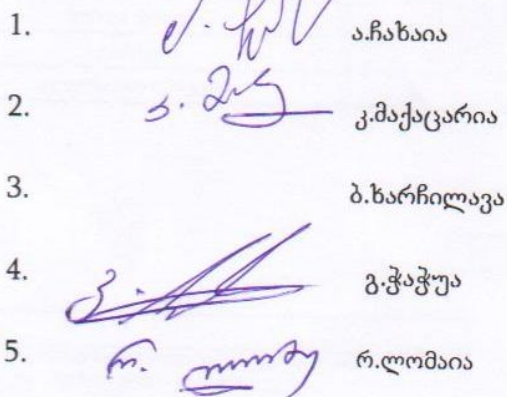 1. ა.ჩახაია
2. კ.მაქაცარია
3. ბ.ხარჩილავა
4. გ.ჭაჭუა
5. რ.ლომაია